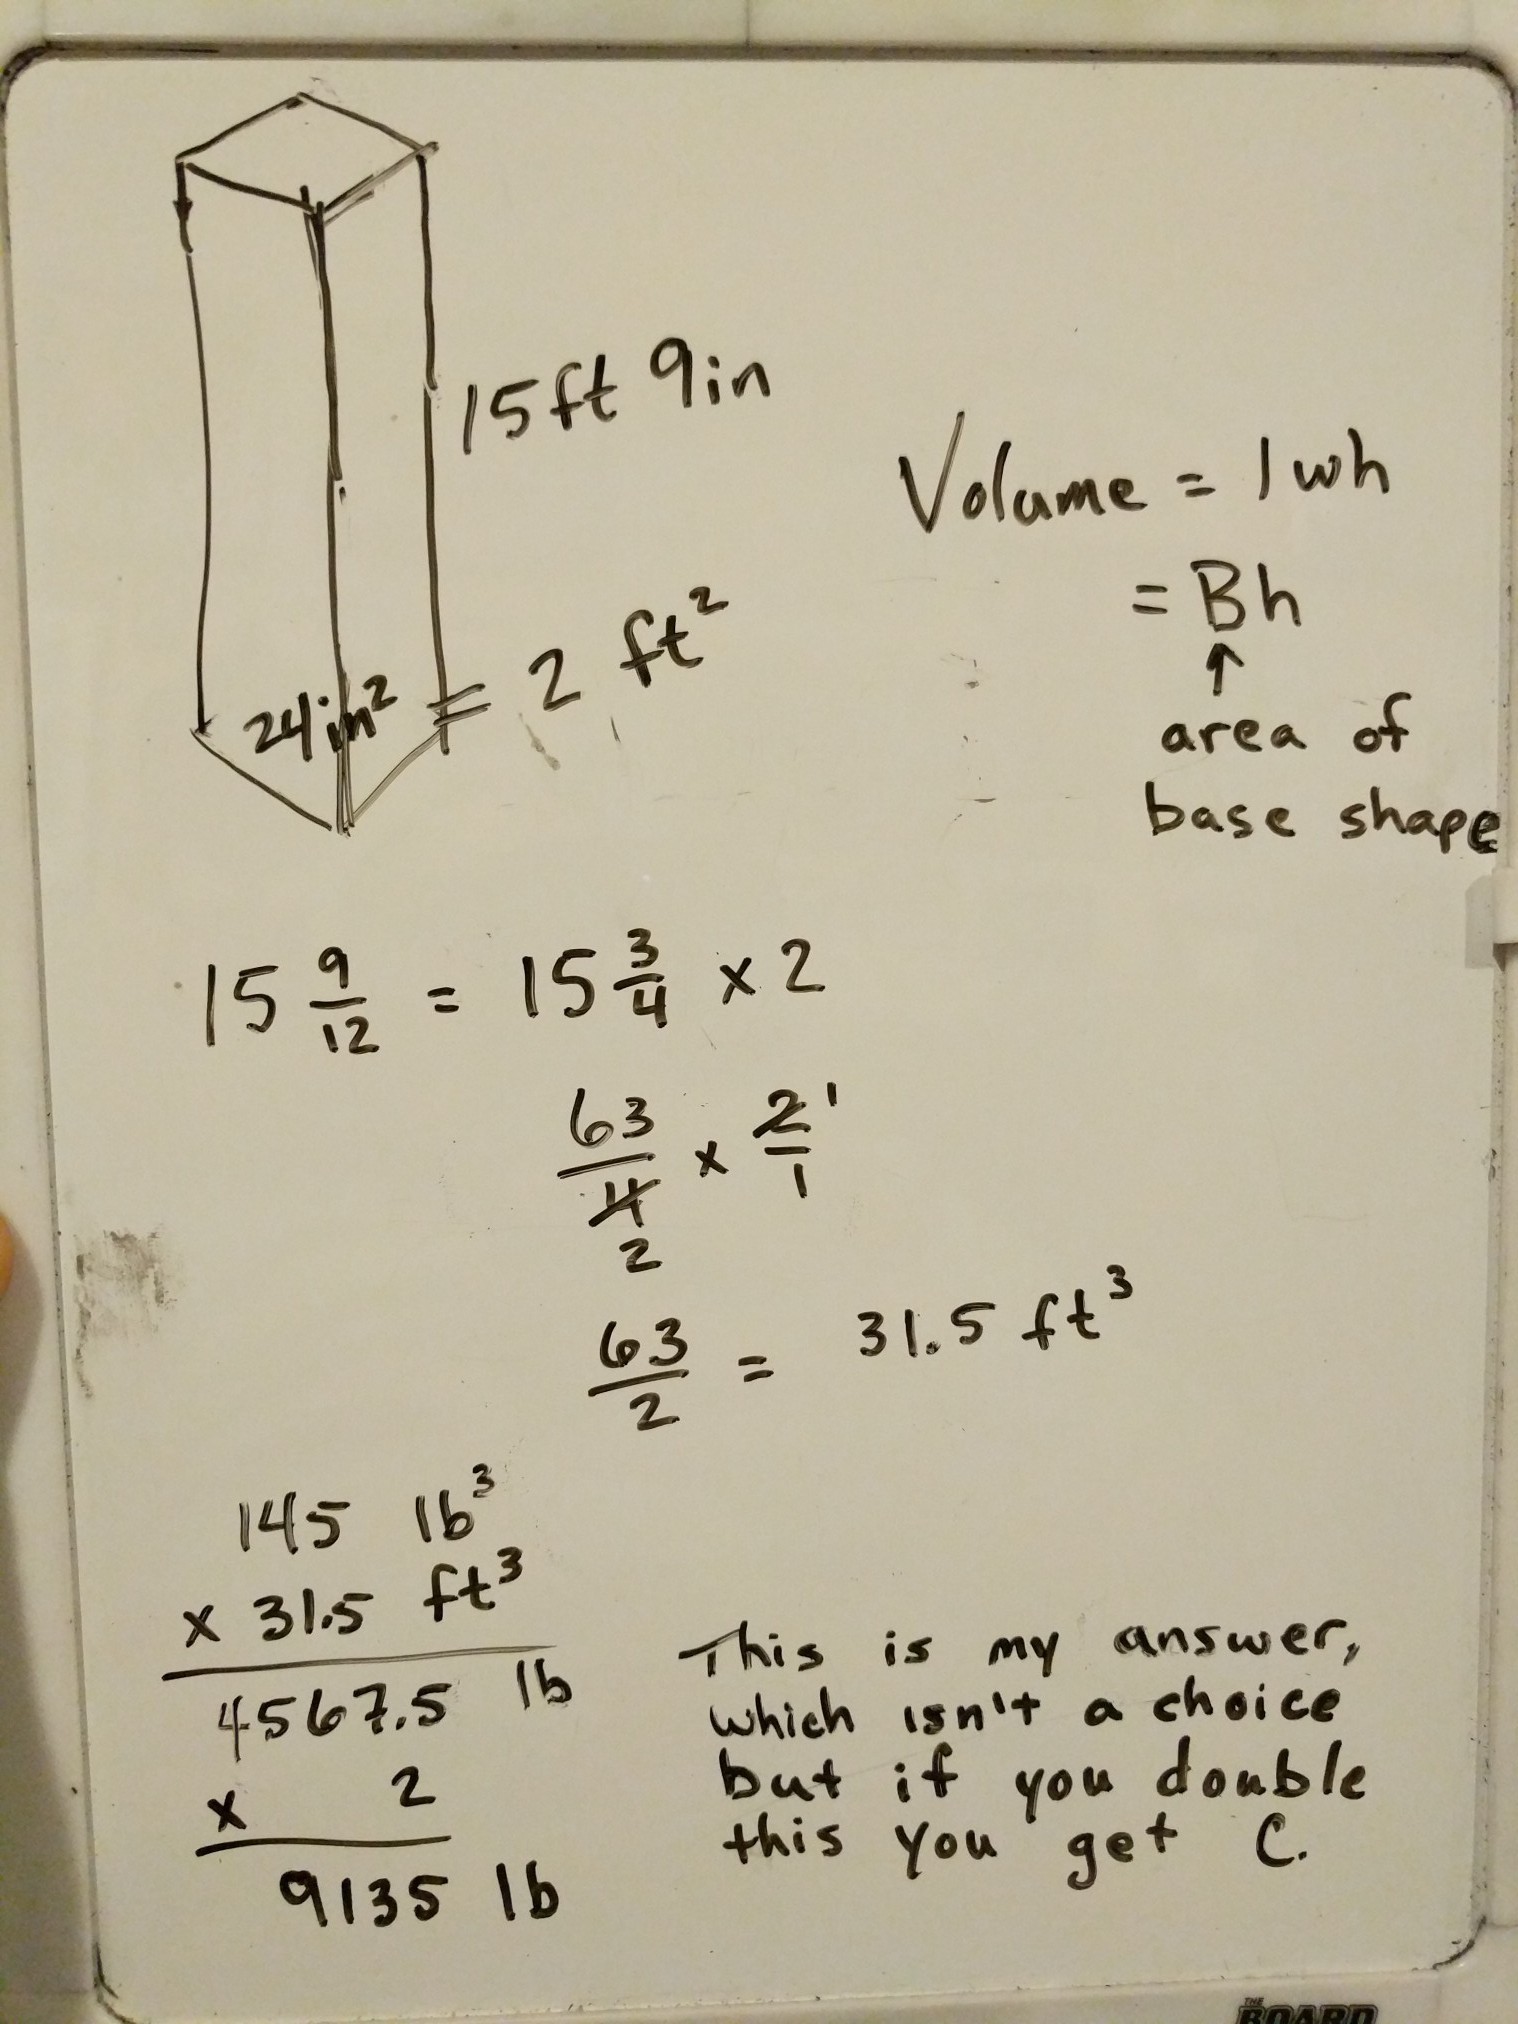 15ft 9in
24in² = 2 ft²
Volume = lwh
= Bh
↑
area of
base shape
15 9/12 = 15 3/4 x 2
63/4 x 2/1
2 1
63/2 = 31.5 ft³
145 lb³
x 31.5 ft³
4567.5 lb
x 2
9135 lb
This is my answer,
which isn't a choice
but if you double
this you get C.
THE
BOARD